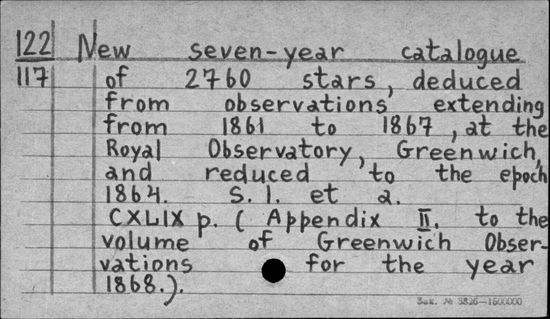 122 New seven-year catalogue
117 of 2760 stars, deduced
from observations extending
from 1861 to 1867, at the
Royal Observatory, Greenwich,
and reduced to the epoch
1864. S. l. et a.
CXLIX p. ( Appendix II. to the
volume of Greenwich Obser-
vations for the year
1868.).
Зак. № 3826—1500000